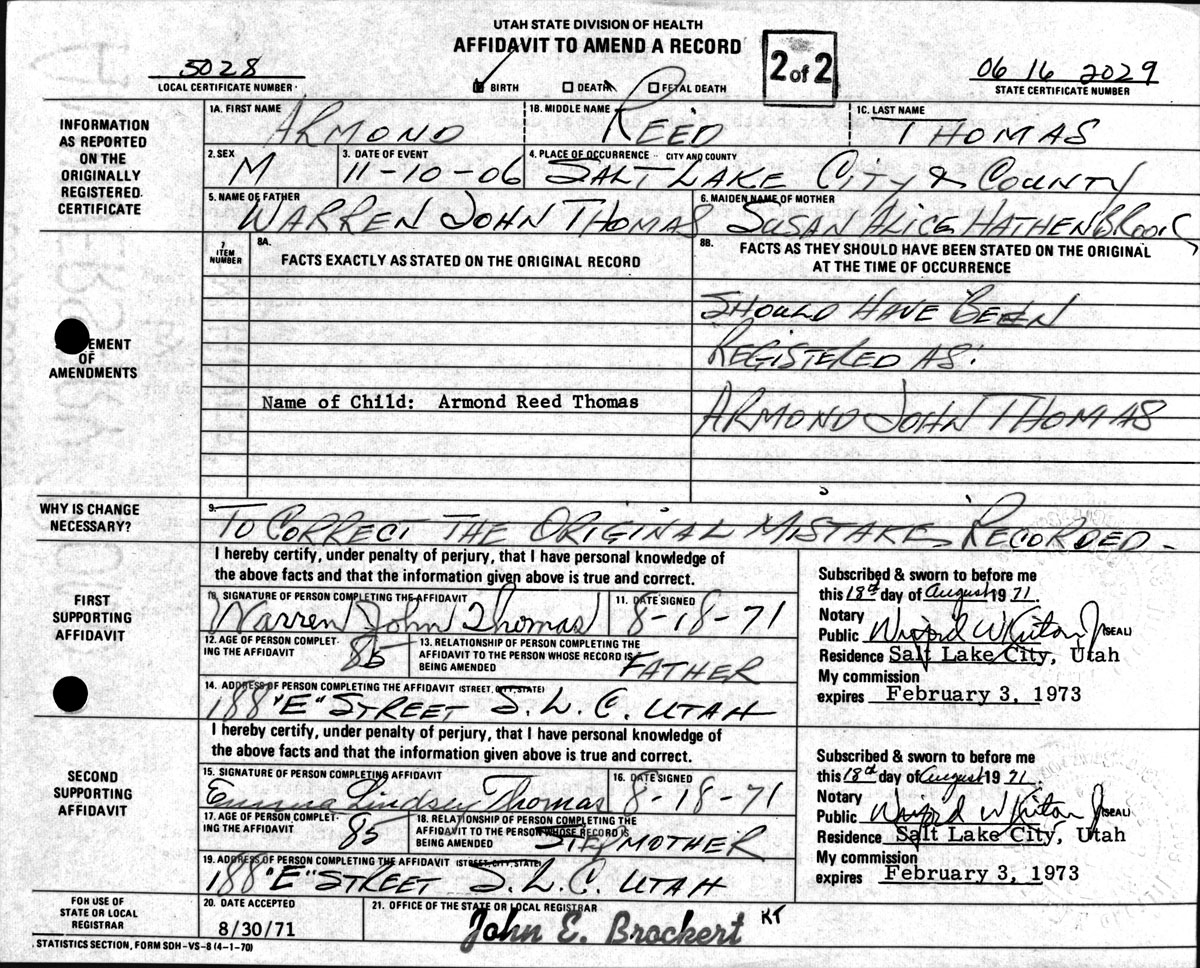 UTAH STATE DIVISION OF HEALTH
AFFIDAVIT TO AMEND A RECORD
2 of 2
5028
LOCAL CERTIFICATE NUMBER
BIRTH DEATH FETAL DEATH
06 16 2029
STATE CERTIFICATE NUMBER
INFORMATION
AS REPORTED
ON THE
ORIGINALLY
REGISTERED
CERTIFICATE
1A. FIRST NAME
ARMOND
1B. MIDDLE NAME
REED
1C. LAST NAME
THOMAS
2. SEX
M
3. DATE OF EVENT
11-10-06
4. PLACE OF OCCURRENCE - CITY AND COUNTY
SALT LAKE CITY & COUNTY
5. NAME OF FATHER
WARREN JOHN THOMAS
6. MAIDEN NAME OF MOTHER
SUSAN ALICE HATHENBROOK
EMENT
OF
AMENDMENTS
7
ITEM
NUMBER
8A.
FACTS EXACTLY AS STATED ON THE ORIGINAL RECORD
8B. FACTS AS THEY SHOULD HAVE BEEN STATED ON THE ORIGINAL
AT THE TIME OF OCCURRENCE
SHOULD HAVE BEEN
REGISTERED AS:
Name of Child: Armond Reed Thomas
ARMOND JOHN THOMAS
WHY IS CHANGE
NECESSARY?
9.
TO CORRECT THE ORIGINAL MISTAKE RECORDED -
FIRST
SUPPORTING
AFFIDAVIT
I hereby certify, under penalty of perjury, that I have personal knowledge of
the above facts and that the information given above is true and correct.
10. SIGNATURE OF PERSON COMPLETING THE AFFIDAVIT
Warren John Thomas
11. DATE SIGNED
8-18-71
12. AGE OF PERSON COMPLET-
ING THE AFFIDAVIT
85
13. RELATIONSHIP OF PERSON COMPLETING THE
AFFIDAVIT TO THE PERSON WHOSE RECORD IS
BEING AMENDED
FATHER
14. ADDRESS OF PERSON COMPLETING THE AFFIDAVIT (STREET, CITY, STATE)
188 "E" STREET S.L.C. UTAH
Subscribed & sworn to before me
this 18th day of August 19 71.
Notary
Public (SEAL)
Residence Salt Lake City, Utah
My commission
expires February 3, 1973
SECOND
SUPPORTING
AFFIDAVIT
I hereby certify, under penalty of perjury, that I have personal knowledge of
the above facts and that the information given above is true and correct.
15. SIGNATURE OF PERSON COMPLETING AFFIDAVIT
Emma Lindsey Thomas
16. DATE SIGNED
8-18-71
17. AGE OF PERSON COMPLET-
ING THE AFFIDAVIT
85
18. RELATIONSHIP OF PERSON COMPLETING THE
AFFIDAVIT TO THE PERSON WHOSE RECORD IS
BEING AMENDED
STEPMOTHER
19. ADDRESS OF PERSON COMPLETING THE AFFIDAVIT (STREET, CITY, STATE)
188 "E" STREET S.L.C. UTAH
Subscribed & sworn to before me
this 18th day of August 19 71.
Notary
Public (SEAL)
Residence Salt Lake City, Utah
My commission
expires February 3, 1973
FOR USE OF
STATE OR LOCAL
REGISTRAR
20. DATE ACCEPTED
8/30/71
21. OFFICE OF THE STATE OR LOCAL REGISTRAR
John E. Brockert KT
STATISTICS SECTION, FORM SDH-VS-8 (4-1-70)